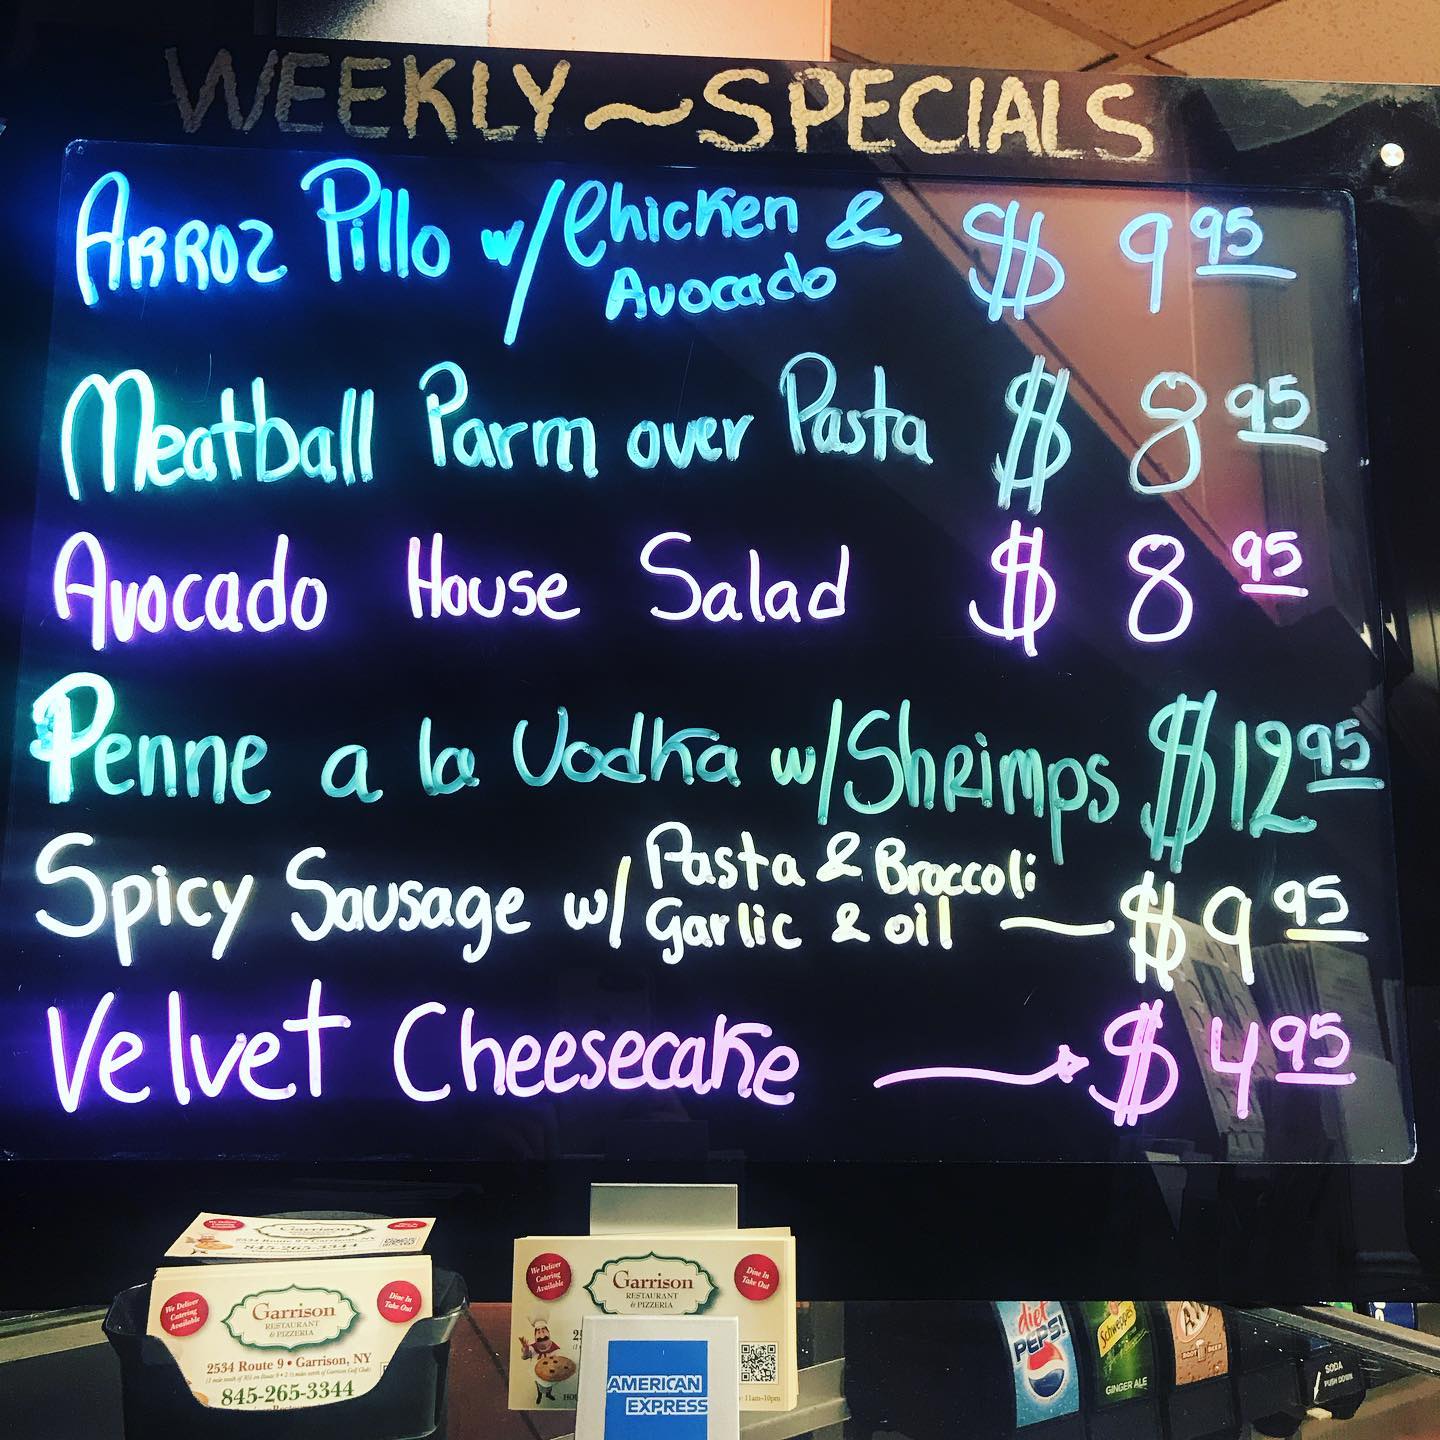 WEEKLY~SPECIALS
Arroz Pillo w/Chicken & Avocado $9.95
Meatball Parm over Pasta $8.95
Avocado House Salad $8.95
Penne a la Vodka w/Shrimps $12.95
Spicy Sausage w/ Pasta & Broccoli Garlic & oil — $9.95
Velvet Cheesecake → $4.95
Garrison
845-265-3344
We Deliver
Catering
Available
Dine In
Take Out
Garrison
RESTAURANT
& PIZZERIA
2534 Route 9 • Garrison, NY
845-265-3344
We Deliver
Catering
Available
Dine In
Take Out
Garrison
RESTAURANT
& PIZZERIA
11am-10pm
AMERICAN
EXPRESS
diet
PEPSI
Schweppes
GINGER ALE
A&W
ROOT BEER
SODA
PUSH DOWN